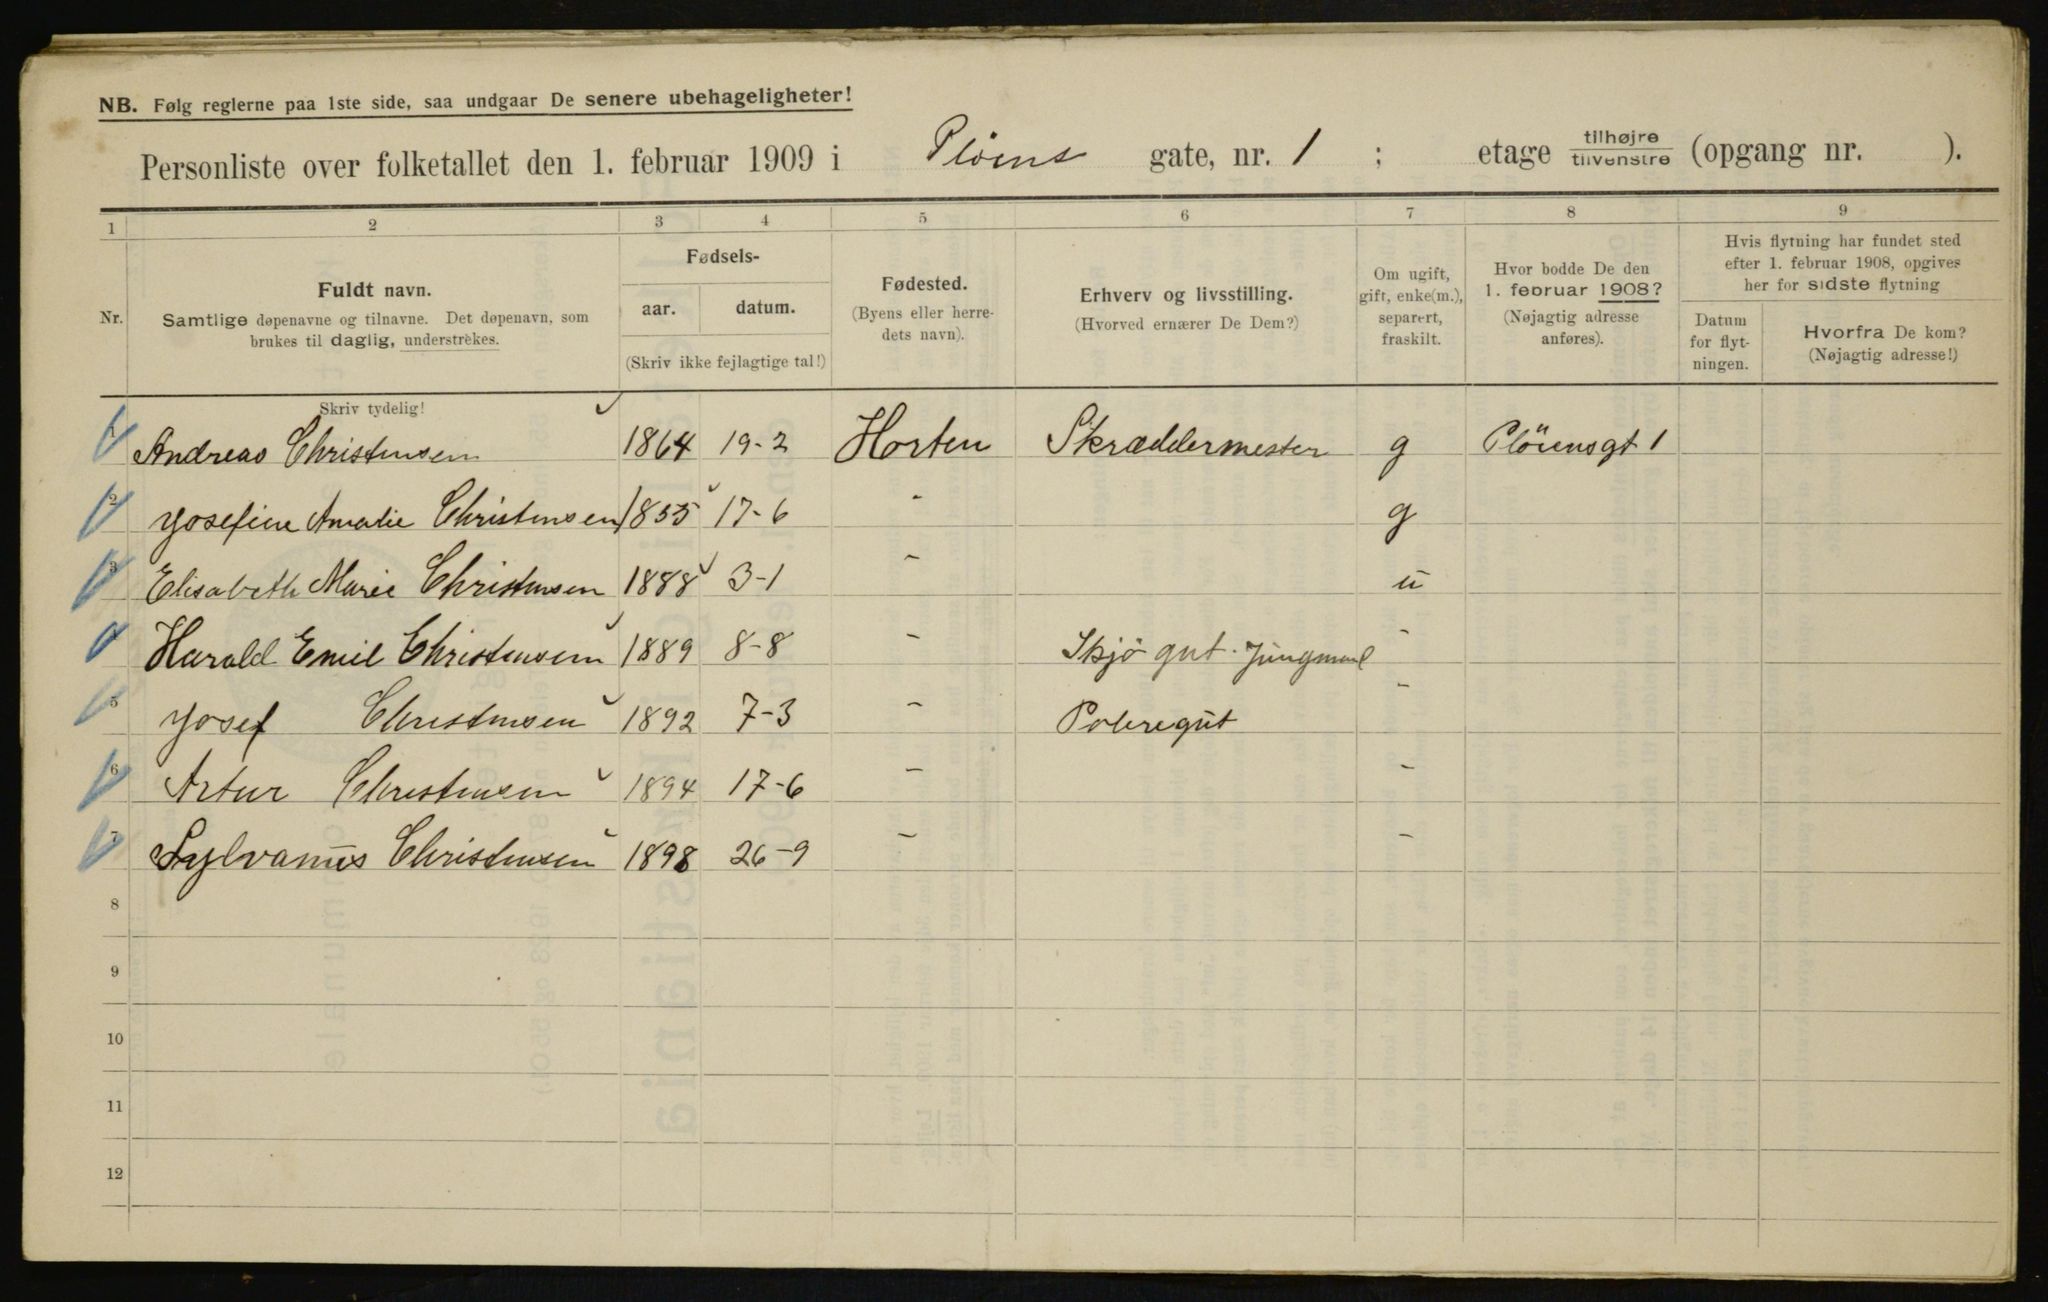 NB. Følg reglerne paa 1ste side, saa undgaar De senere ubehageligheter!
Personliste over folketallet den 1. februar 1909 i Pløens gate, nr. 1 ; etage tilhøjre / tilvenstre (opgang nr. ).
1 2 3 4 5 6 7 8 9
Nr.
Fuldt navn.
Samtlige døpenavne og tilnavne. Det døpenavn, som
brukes til daglig, understrekes.
Fødsels-
aar. datum.
(Skriv ikke fejlagtige tal!)
Fødested.
(Byens eller herre-
dets navn).
Erhverv og livsstilling.
(Hvorved ernærer De Dem?)
Om ugift,
gift, enke(m.),
separert,
fraskilt.
Hvor bodde De den
1. februar 1908?
(Nøjagtig adresse
anføres).
Hvis flytning har fundet sted
efter 1. februar 1908, opgives
her for sidste flytning
Datum
for flyt-
ningen.
Hvorfra De kom?
(Nøjagtig adresse!)
Skriv tydelig!
1 Andreas Christensen 1864 19-2 Horten Skræddermester g Pløiensgt 1
2 Josefine Amalie Christensen 1855 17-6 - g
3 Elisabeth Marie Christensen 1888 3-1 - u
4 Harald Emil Christensen 1889 8-8 - Skjö gut. Jungmand -
5 Josef Christensen 1892 7-3 - -
6 Artur Christensen 1894 17-6 - -
7 Sylvanus Christensen 1898 26-9 - -
8
9
10
11
12